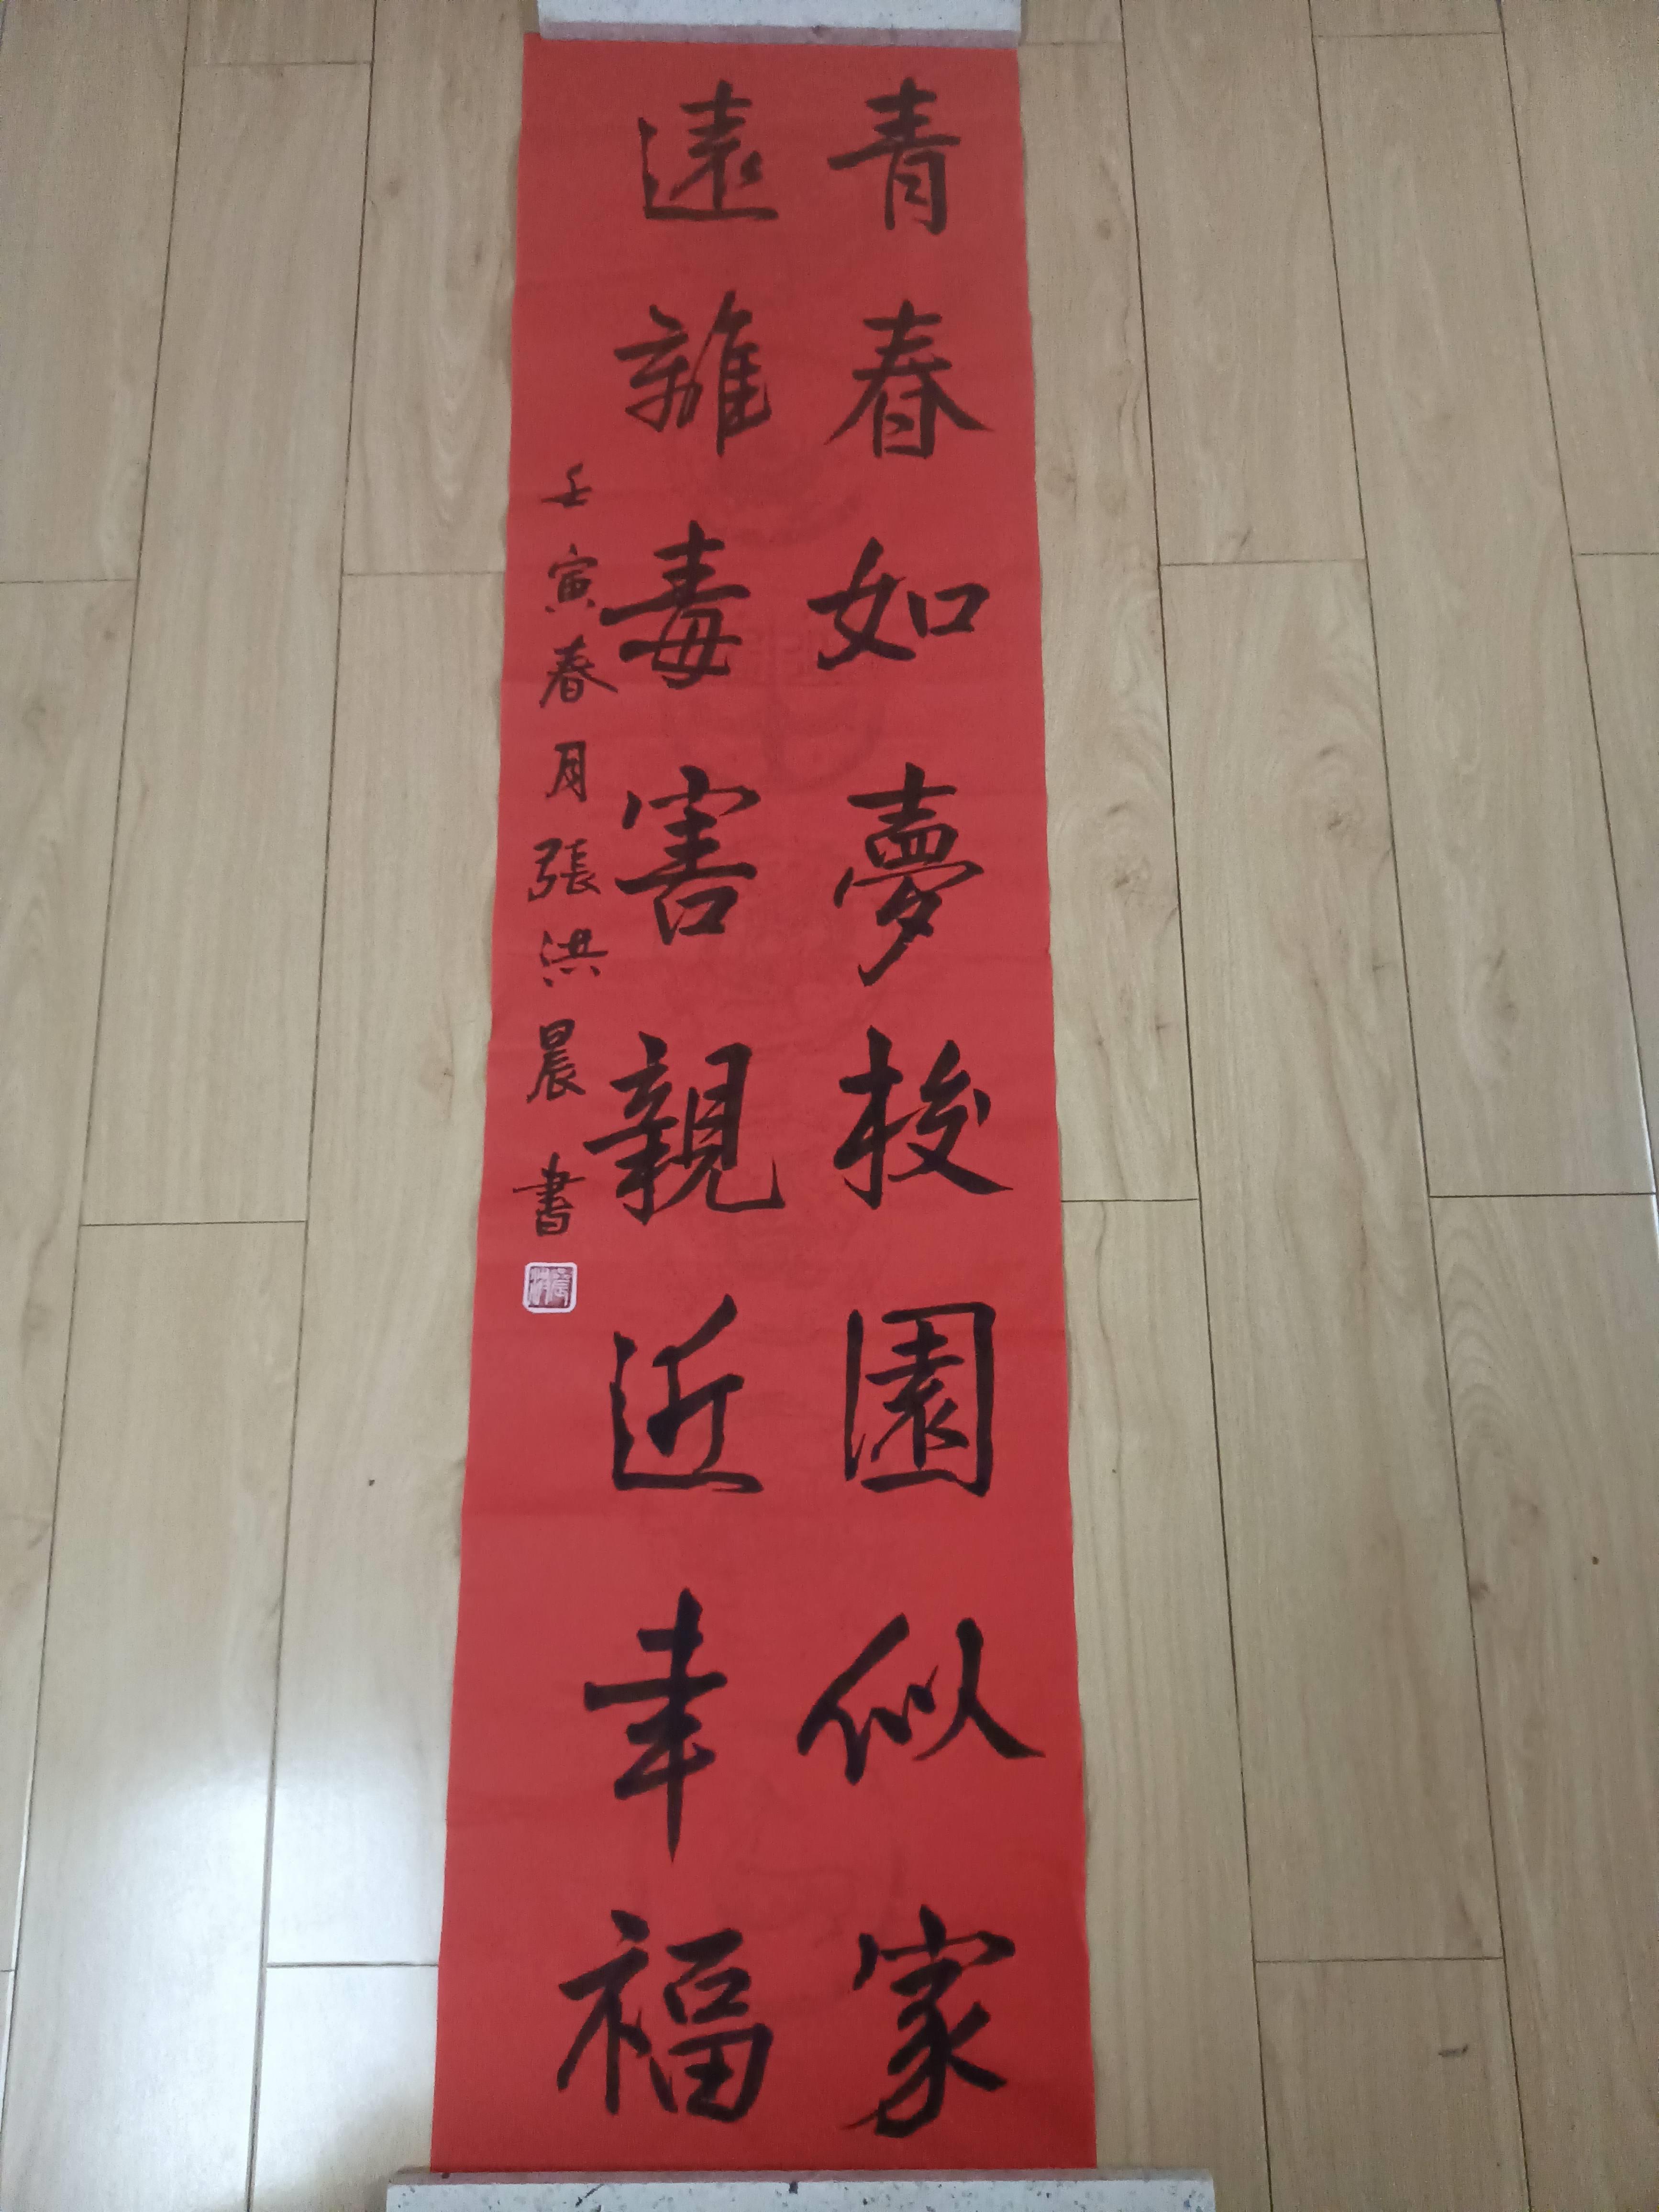 青春如夢校園似家
遠離毒害親近幸福
壬寅春月張洪晨書